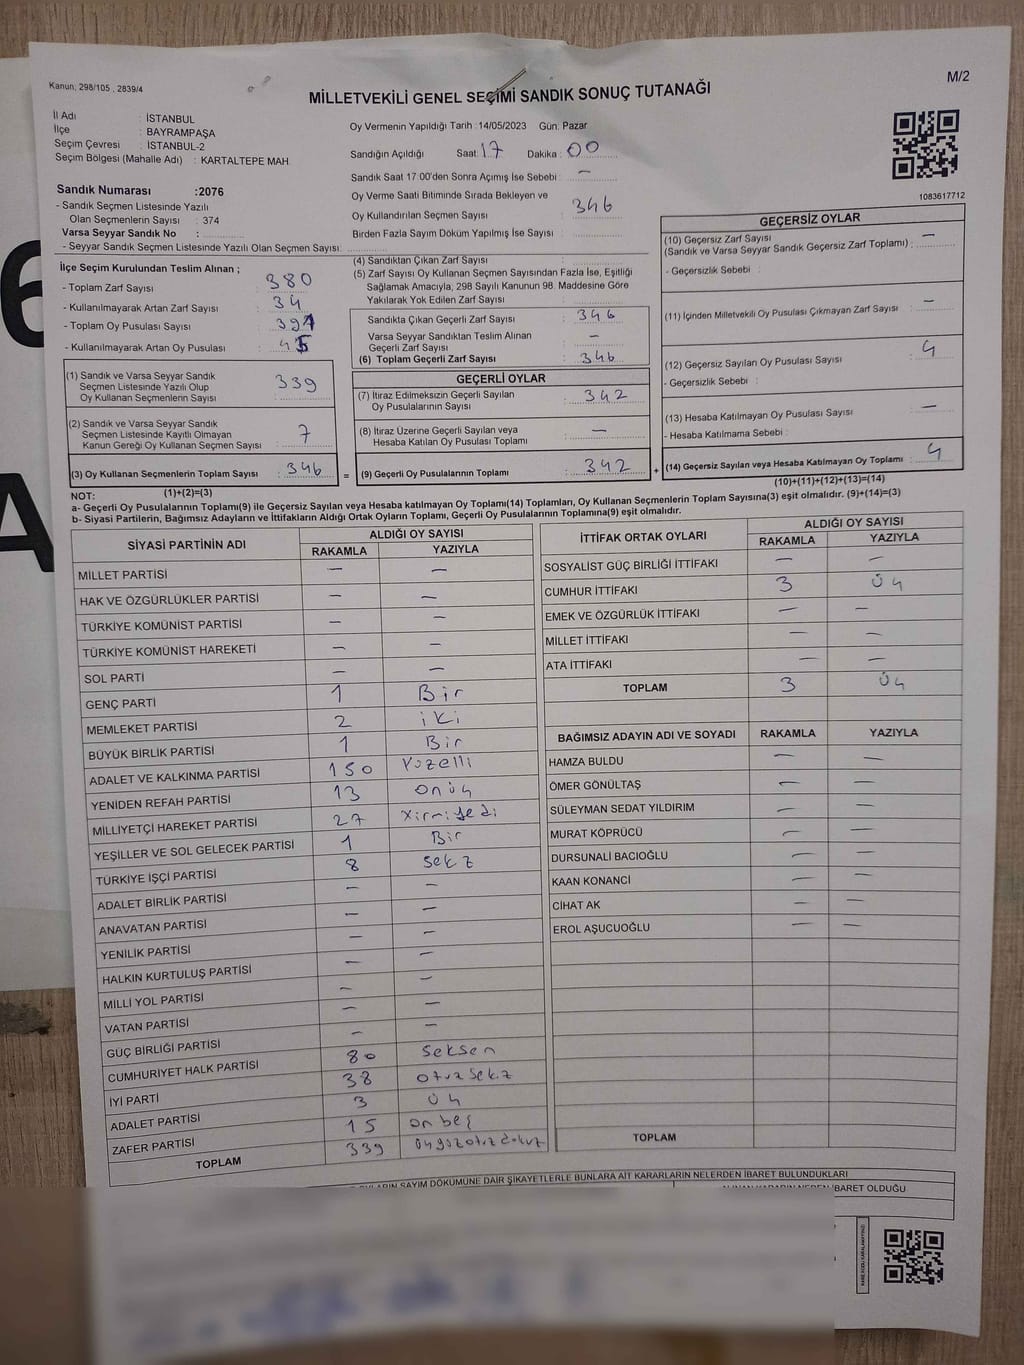 Kanun; 298/105 , 2839/4
M/2
MİLLETVEKİLİ GENEL SEÇİMİ SANDIK SONUÇ TUTANAĞI
İl Adı : İSTANBUL
İlçe : BAYRAMPAŞA
Seçim Çevresi : İSTANBUL-2
Seçim Bölgesi (Mahalle Adı) : KARTALTEPE MAH.
Sandık Numarası :2076
- Sandık Seçmen Listesinde Yazılı
Olan Seçmenlerin Sayısı : 374
Varsa Seyyar Sandık No :
- Seyyar Sandık Seçmen Listesinde Yazılı Olan Seçmen Sayısı:
Oy Vermenin Yapıldığı Tarih :14/05/2023 Gün: Pazar
Sandığın Açıldığı Saat: 17 Dakika : 00
Sandık Saat 17:00'den Sonra Açımış İse Sebebi : —
Oy Verme Saati Bitiminde Sırada Bekleyen ve
Oy Kullandırılan Seçmen Sayısı : 346
Birden Fazla Sayım Döküm Yapılmış İse Sayısı :
1083617712
İlçe Seçim Kurulundan Teslim Alınan ;
- Toplam Zarf Sayısı : 380
- Kullanılmayarak Artan Zarf Sayısı : 34
- Toplam Oy Pusulası Sayısı :
- Kullanılmayarak Artan Oy Pusulası :
(1) Sandık ve Varsa Seyyar Sandık
Seçmen Listesinde Yazılı Olup
Oy Kullanan Seçmenlerin Sayısı : 339
(2) Sandık ve Varsa Seyyar Sandık
Seçmen Listesinde Kayıtlı Olmayan
Kanun Gereği Oy Kullanan Seçmen Sayısı : 7
(3) Oy Kullanan Seçmenlerin Toplam Sayısı : 346
(1)+(2)=(3)
(4) Sandıktan Çıkan Zarf Sayısı :
(5) Zarf Sayısı Oy Kullanan Seçmen Sayısından Fazla İse, Eşitliği
Sağlamak Amacıyla, 298 Sayılı Kanunun 98. Maddesine Göre
Yakılarak Yok Edilen Zarf Sayısı :
Sandıkta Çıkan Geçerli Zarf Sayısı : 346
Varsa Seyyar Sandıktan Teslim Alınan
Geçerli Zarf Sayısı : —
(6) Toplam Geçerli Zarf Sayısı : 346
GEÇERLİ OYLAR
(7) İtiraz Edilmeksizin Geçerli Sayılan
Oy Pusulalarının Sayısı : 342
(8) İtiraz Üzerine Geçerli Sayılan veya
Hesaba Katılan Oy Pusulası Toplamı : —
= (9) Geçerli Oy Pusulalarının Toplamı : 342 +
GEÇERSİZ OYLAR
(10) Geçersiz Zarf Sayısı
(Sandık ve Varsa Seyyar Sandık Geçersiz Zarf Toplamı) : —
- Geçersizlik Sebebi :
(11) İçinden Milletvekili Oy Pusulası Çıkmayan Zarf Sayısı : —
(12) Geçersiz Sayılan Oy Pusulası Sayısı : 4
- Geçersizlik Sebebi :
(13) Hesaba Katılmayan Oy Pusulası Sayısı : —
- Hesaba Katılmama Sebebi :
(14) Geçersiz Sayılan veya Hesaba Katılmayan Oy Toplamı : 4
(10)+(11)+(12)+(13)=(14)
NOT:
a- Geçerli Oy Pusulalarının Toplamı(9) ile Geçersiz Sayılan veya Hesaba katılmayan Oy Toplamı(14) Toplamları, Oy Kullanan Seçmenlerin Toplam Sayısına(3) eşit olmalıdır. (9)+(14)=(3)
b- Siyasi Partilerin, Bağımsız Adayların ve İttifakların Aldığı Ortak Oyların Toplamı, Geçerli Oy Pusulalarının Toplamına(9) eşit olmalıdır.
SİYASİ PARTİNİN ADI ALDIĞI OY SAYISI
RAKAMLA YAZIYLA
MİLLET PARTİSİ — —
HAK VE ÖZGÜRLÜKLER PARTİSİ — —
TÜRKİYE KOMÜNİST PARTİSİ — —
TÜRKİYE KOMÜNİST HAREKETİ — —
SOL PARTİ — —
GENÇ PARTİ 1 Bir
MEMLEKET PARTİSİ 2 iki
BÜYÜK BİRLİK PARTİSİ 1 Bir
ADALET VE KALKINMA PARTİSİ 150 Yüzelli
YENİDEN REFAH PARTİSİ 13 onüç
MİLLİYETÇİ HAREKET PARTİSİ 27 Yirmiyedi
YEŞİLLER VE SOL GELECEK PARTİSİ 1 Bir
TÜRKİYE İŞÇİ PARTİSİ 8 sekz
ADALET BİRLİK PARTİSİ — —
ANAVATAN PARTİSİ — —
YENİLİK PARTİSİ — —
HALKIN KURTULUŞ PARTİSİ — —
MİLLİ YOL PARTİSİ — —
VATAN PARTİSİ — —
GÜÇ BİRLİĞİ PARTİSİ — —
CUMHURİYET HALK PARTİSİ 80 seksen
İYİ PARTİ 38 otuzsekz
ADALET PARTİSİ 3 üç
ZAFER PARTİSİ 15 on beş
TOPLAM 339 üçyüzotuzdokuz
İTTİFAK ORTAK OYLARI ALDIĞI OY SAYISI
RAKAMLA YAZIYLA
SOSYALİST GÜÇ BİRLİĞİ İTTİFAKI — —
CUMHUR İTTİFAKI 3 üç
EMEK VE ÖZGÜRLÜK İTTİFAKI — —
MİLLET İTTİFAKI — —
ATA İTTİFAKI — —
TOPLAM 3 üç
BAĞIMSIZ ADAYIN ADI VE SOYADI RAKAMLA YAZIYLA
HAMZA BULDU — —
ÖMER GÖNÜLTAŞ — —
SÜLEYMAN SEDAT YILDIRIM — —
MURAT KÖPRÜCÜ — —
DURSUNALİ BACIOĞLU — —
KAAN KONANCİ — —
CİHAT AK — —
EROL AŞUCUOĞLU — —
TOPLAM
SAYIM DÖKÜMÜNE DAİR ŞİKAYETLERLE BUNLARA AİT KARARLARIN NELERDEN İBARET BULUNDUKLARI
İBARET OLDUĞU